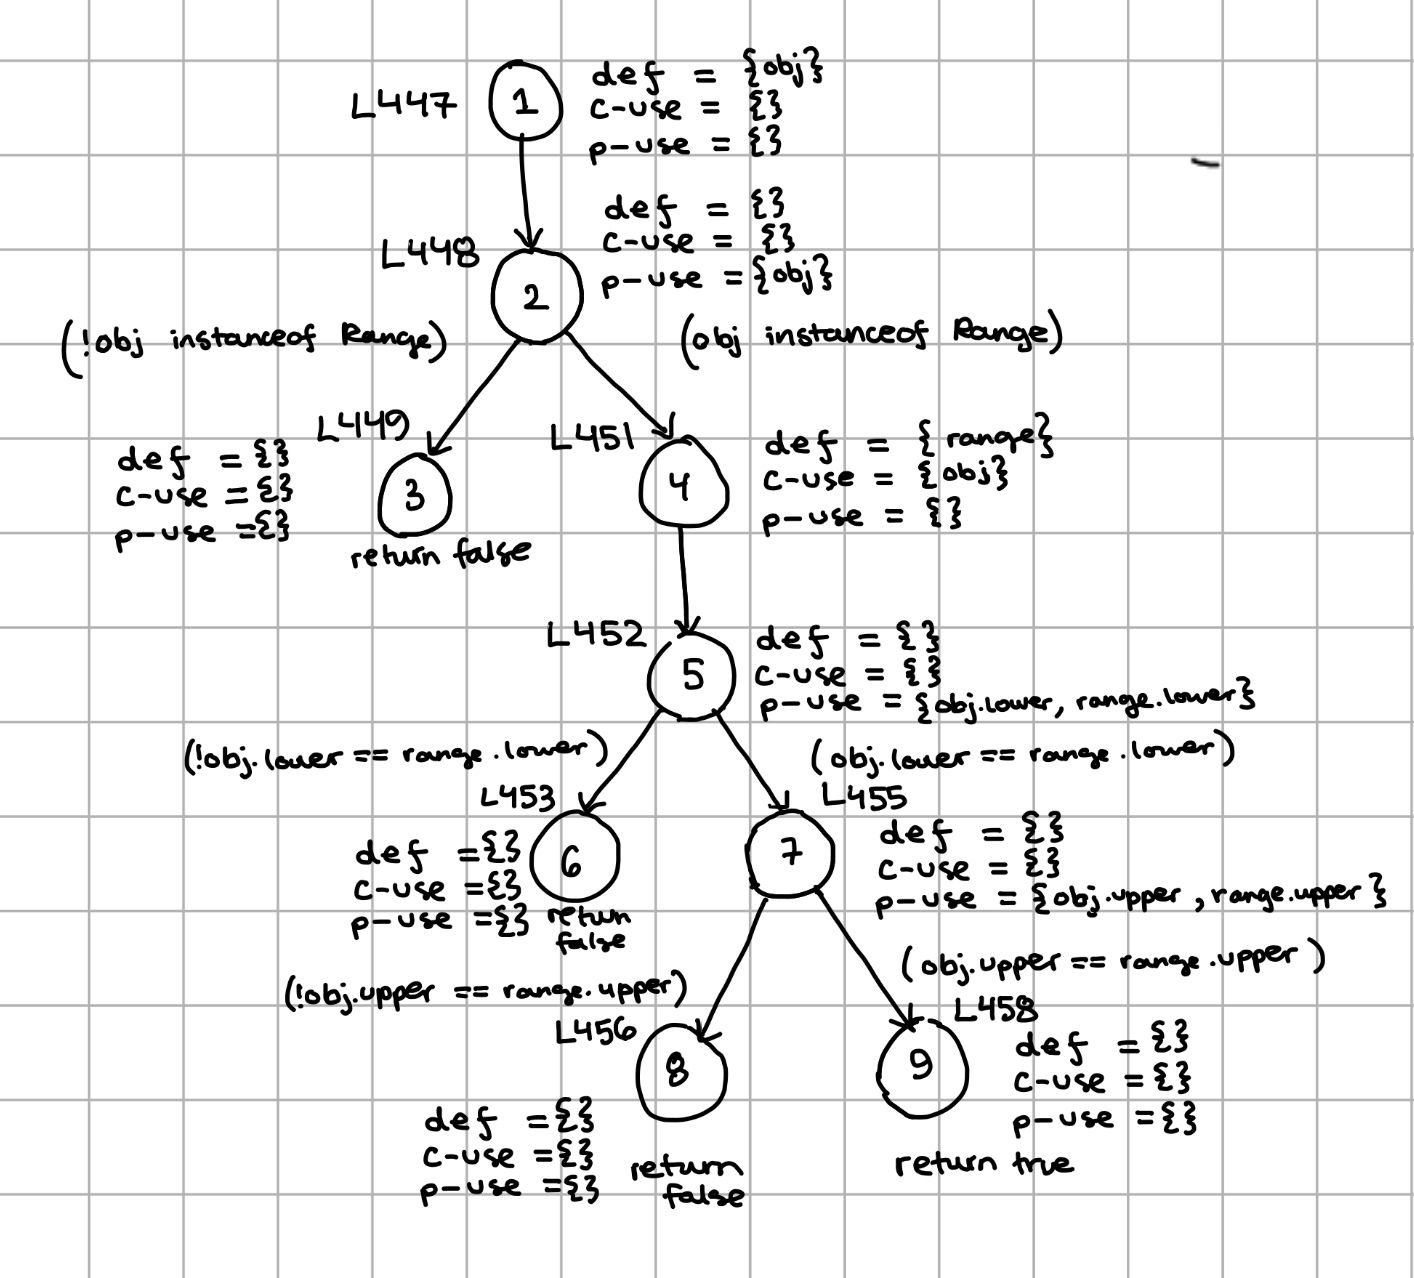 L447
1
def = {obj}
c-use = {}
p-use = {}
L448
2
def = {}
c-use = {}
p-use = {obj}
(!obj instanceof Range)
(obj instanceof Range)
L449
3
def = {}
c-use = {}
p-use = {}
return false
L451
4
def = {range}
c-use = {obj}
p-use = {}
L452
5
def = {}
c-use = {}
p-use = {obj.lower, range.lower}
(!obj.lower == range.lower)
(obj.lower == range.lower)
L453
6
def = {}
c-use = {}
p-use = {}
return
false
L455
7
def = {}
c-use = {}
p-use = {obj.upper, range.upper}
(!obj.upper == range.upper)
(obj.upper == range.upper)
L456
8
def = {}
c-use = {}
p-use = {}
return
false
L458
9
def = {}
c-use = {}
p-use = {}
return true